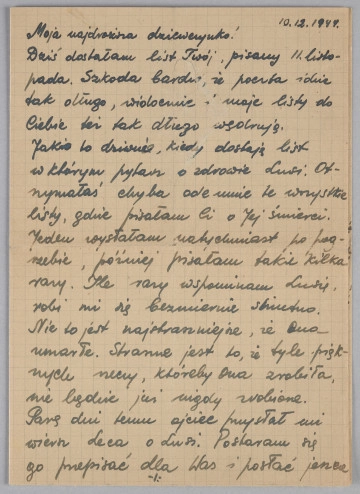 10.12.1944.
Moja najdroższa dziewczynko!
Dziś dostałam list Twój, pisany 11. listo-
pada. Szkoda bardzo, że poczta idzie
tak długo, widocznie i moje listy do
Ciebie też tak długo wędrują.
Jakie to dziwne, kiedy dostaję list
w którym pytasz o zdrowie Lusi. Ot-
rzymałaś chyba ode mnie te wszystkie
listy, gdzie pisałam Ci o Jej śmierci.
Jeden wysłałam natychmiast po pog-
rzebie, później pisałam takie kilka
razy. Ile razy wspominam Lusię,
robi mi się bezmiernie smutno.
Nie to jest najstraszniejsze, że Ona
umarła. Straszne jest to, że tyle pięk-
nych rzeczy, któreby Ona zrobiła,
nie będzie już nigdy zrobione.
Parę dni temu ojciec przysłał mi
wiersz Leca o Lusi. Postaram się
go przepisać dla Was i posłać jeszcze
-1-